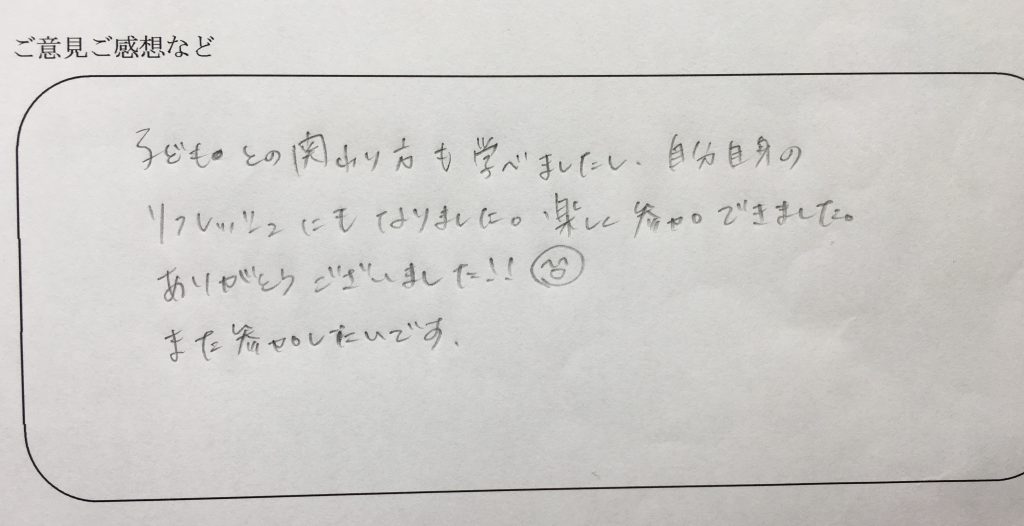 ご意見ご感想など
子どもとの関わり方も学べましたし、自分自身の
リフレッシュにもなりました。楽しく参加できました。
ありがとうございました!!
また参加したいです.